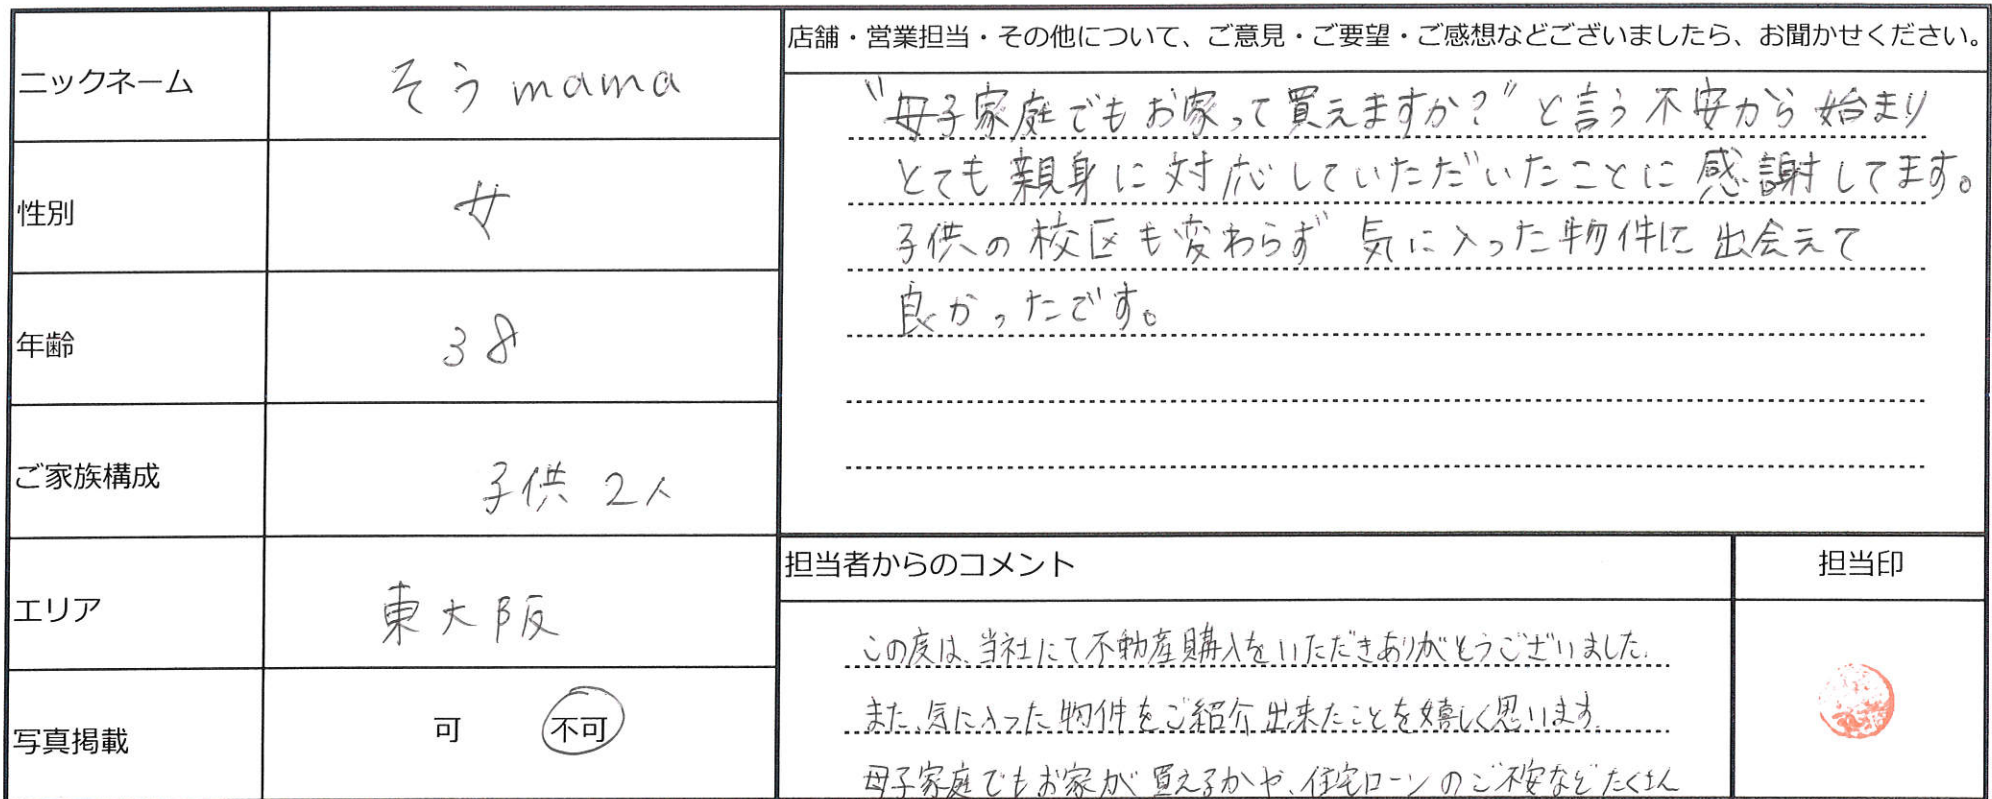 ニックネーム
そうmama
性別
女
年齢
38
ご家族構成
子供 2人
エリア
東大阪
写真掲載
可 不可
店舗・営業担当・その他について、ご意見・ご要望・ご感想などございましたら、お聞かせください。
"母子家庭でもお家って買えますか?"と言う不安から始まり
とても親身に対応していただいたことに感謝してます。
子供の校区も変わらず 気に入った物件に出会えて
良かったです。
担当者からのコメント
担当印
この度は、当社にて不動産購入をいただきありがとうございました。
また、気に入った物件をご紹介出来たことを嬉しく思います。
母子家庭でもお家が買えるかや、住宅ローンのご不安などたくさん